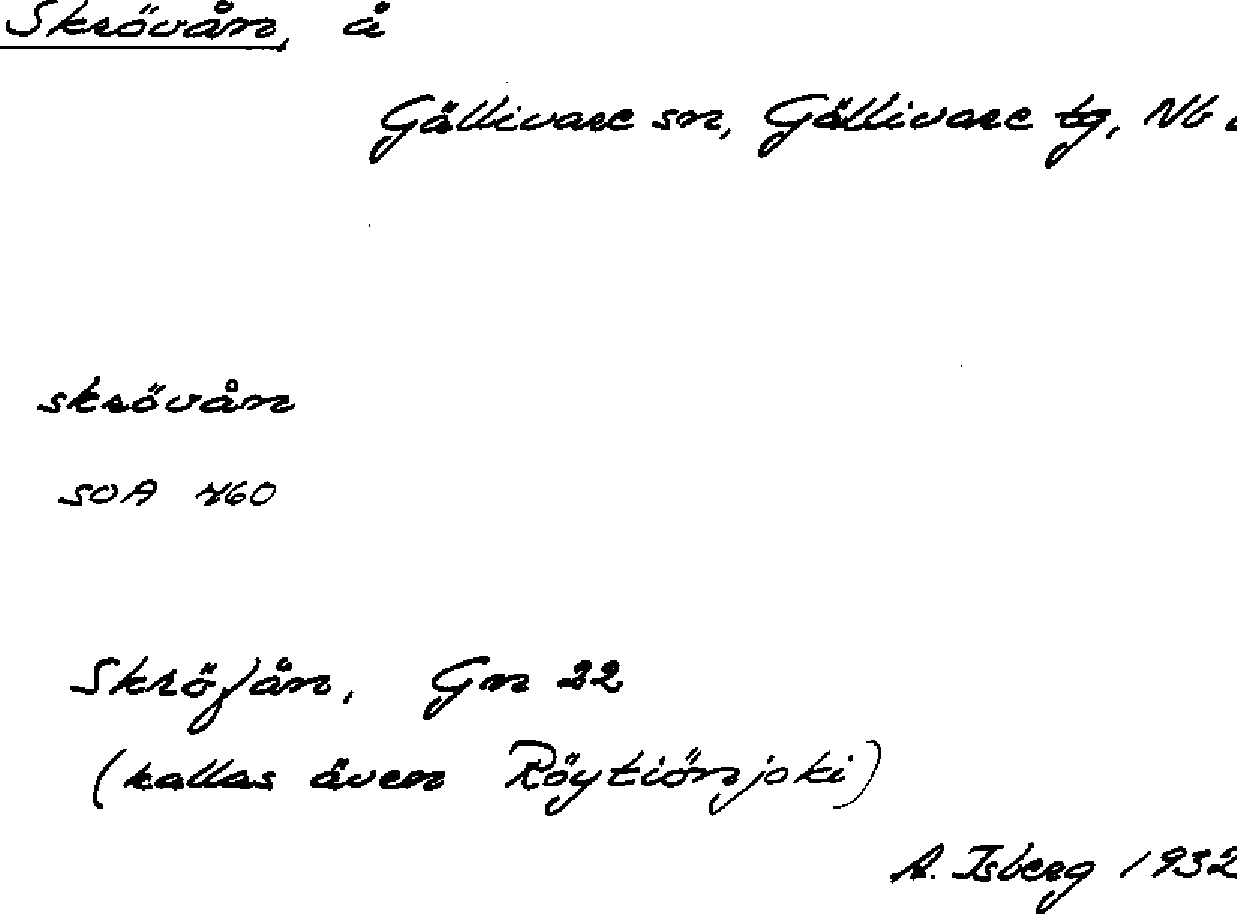 Skrövån, å
Gällivare sn, Gällivare tg, Nb
skrövån
SOA 460
Skröfån, Gm 22
(kallas även Röytiönjoki)
A. Isberg 1932